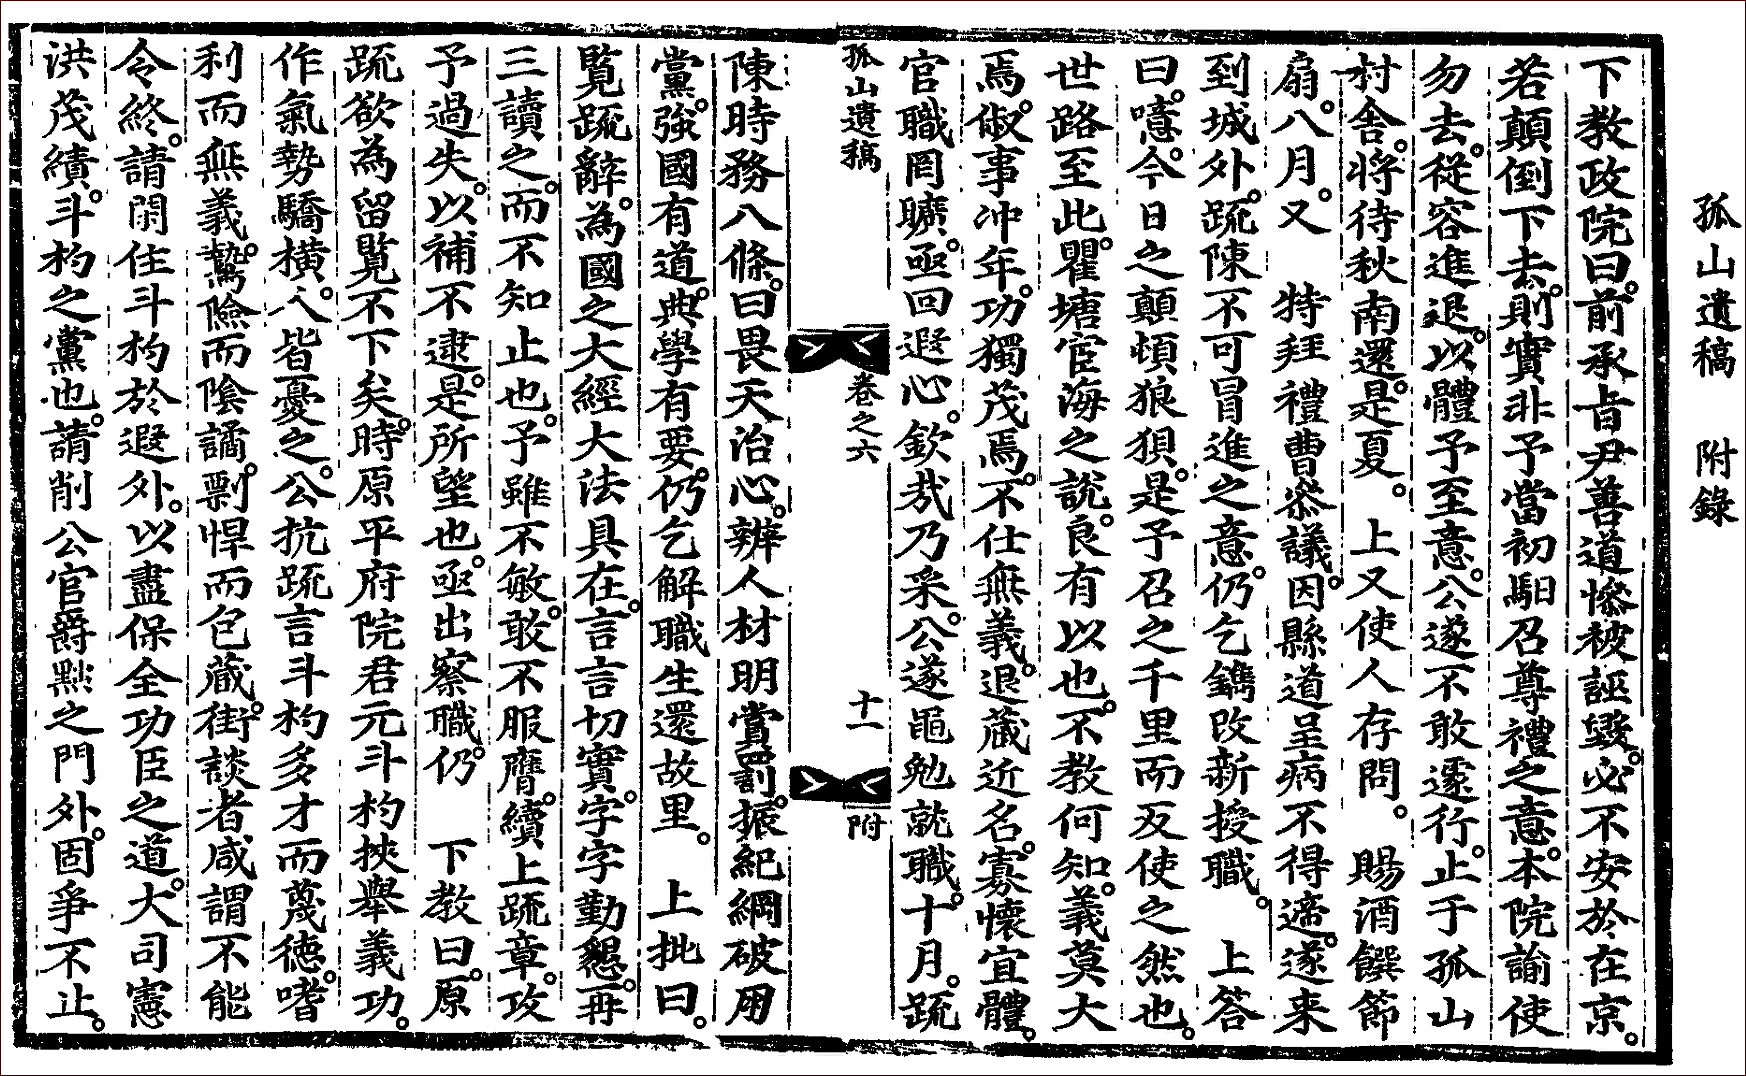 孤山遺稿　附錄
下教政院曰。前承旨尹善道慘被誣毀。必不安於在京。
若顛倒下去。則實非予當初馹召尊禮之意。本院諭使
勿去。從容進退。以體予至意。公遂不敢遽行。止于孤山
村舍。將待秋南還。是夏。上又使人存問。賜酒饌節
扇。八月。又　特拜禮曹參議。因縣道呈病不得適。遂來
到城外。疏陳不可冒進之意。仍乞鐫改新授職。　上答
曰。噫。今日之顛頓狼狽。是予召之千里而反使之然也。
世路至此。瞿塘宦海之說。良有以也。不教何知。義莫大
焉。俶事冲年。功獨茂焉。不仕無義。退藏近名。寡懷宜體。
官職罔曠。亟回遐心。欽哉乃采。公遂黽勉就職。十月。疏
孤山遺稿　卷之六　十一　附
陳時務八條。曰畏天治心。辨人材明賞罰。振紀綱破用
黨。強國有道。典學有要。仍乞解職生還故里。　上批曰。
覽疏辭。為國之大經大法具在。言言切實。字字勤懇。再
三讀之。而不知止也。予雖不敏。敢不服膺。續上疏章。攻
予過失。以補不逮。是所望也。亟出察職。仍　下教曰。原
疏欲為留覽不下矣。時原平府院君元斗杓挾舉義功。
作氣勢驕橫。人皆憂之。公抗疏言斗杓多才而蔑德。嗜
利而無義。鷙險而陰譎。剽悍而包藏。街談者咸謂不能
令終。請閑住斗杓於遐外。以盡保全功臣之道。大司憲
洪茂績。斗杓之黨也。請削公官爵黜之門外。固爭不止。